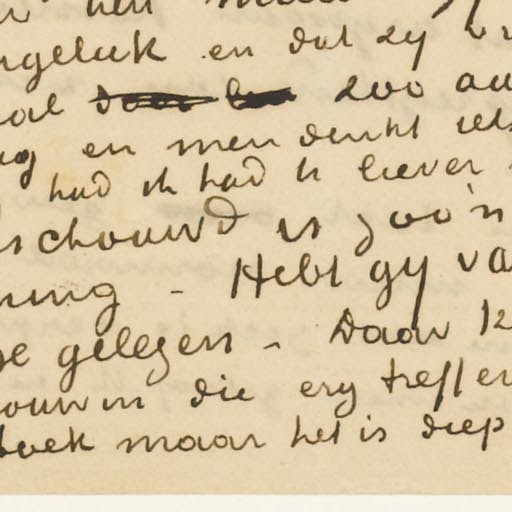 ngeluk en dat zy
zoo
en men denkt iets
had ik had ik liever
schouwd is zoo'n
ning - Hebt gy va
gelezen - Daar k
ouw in die erg treffen
boek maar het is diep